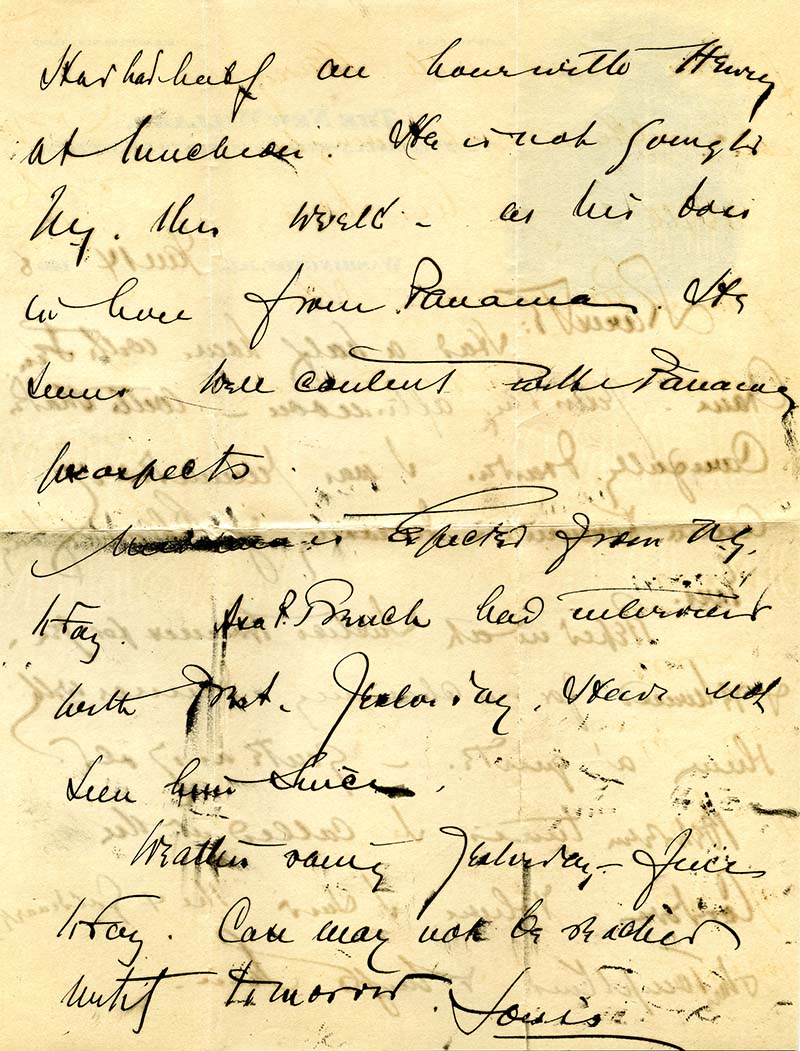 Had half an hour with Henry
at luncheon. He is not going to
N.Y. this week – as his boss
is here from Panama. He
seems well content with Panama
prospects.
is expected from N.Y.
today. Asa P. French had interview
with Prest. yesterday. Have not
seen him since.
Weather rainy yesterday –
today. Case may not be reached
until tomorrow. Louis